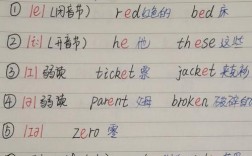 ① |e| (闭音节) red红色的 bed 床
② |i:| (开音节) he 他 these 这些
③ |ɪ| 弱读 ticket 票 jacket 夹克衫
④ |ə| 弱读 parent 父母 broken 破碎的
⑤ |ɪə| zero 零